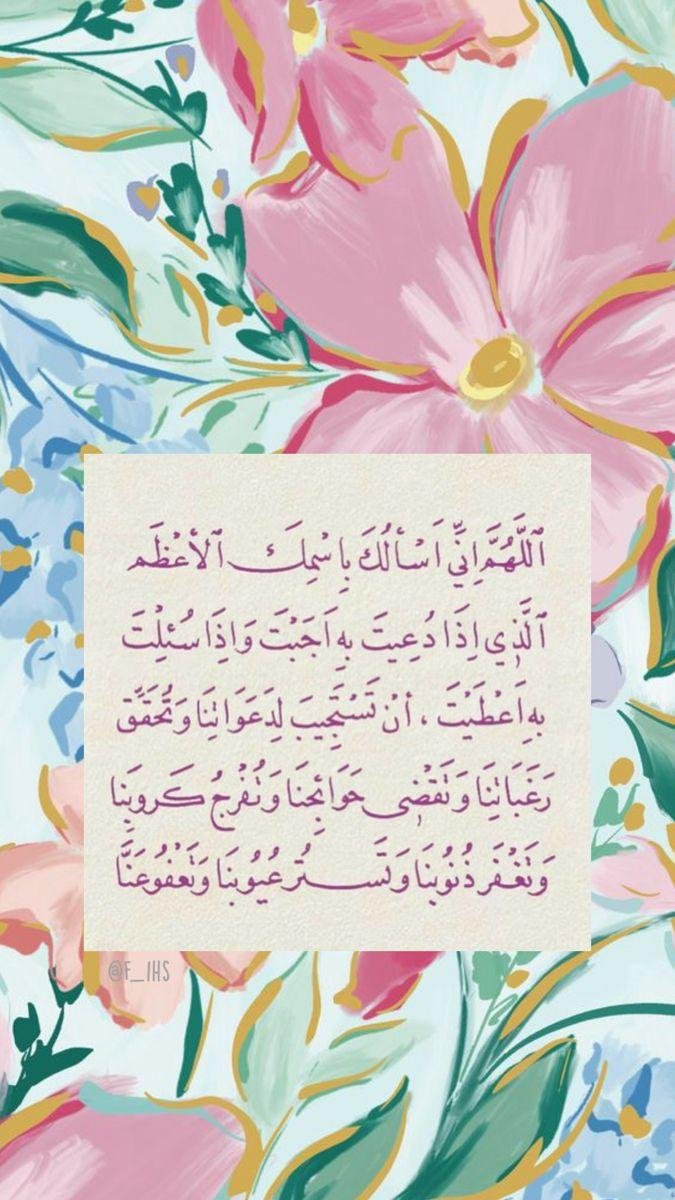 ٱللَّهُمَّ إِنِّي اَسْأَلُكَ بِاسْمِكَ ٱلأَعْظَم
ٱلَّذِي إِذَا دُعِيتَ بِهِ اَجَبْتَ وَإِذَا سُئِلْتَ
بِهِ اَعْطَيْتَ ، أَنْ تَسْتَجِيبَ لِدَعَوَاتِنَا وَتُحَقِّق
رَغَبَاتِنَا وَتَقْضِى حَوَائِجِنَا وَتُفْرِجُ كَروبِنا
وَتَغْفَر ذُنُوبِنَا وَتَستُر عُيُوبِنَا وَتَعْفُو عَنَّا
@F_IHS